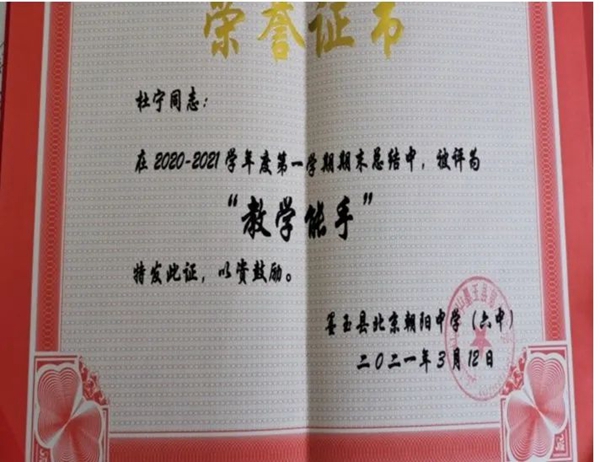 荣誉证书
杜宁同志：
在2020-2021学年度第一学期期末总结中，被评为
“教学能手”
特发此证，以资鼓励。
墨玉县北京朝阳中学（六中）
二〇二一年3月12日